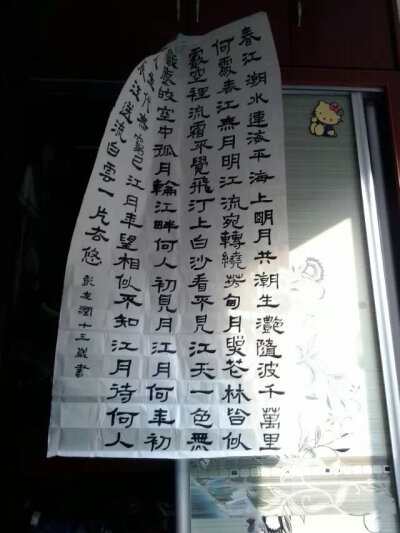 春江潮水連海平海上明月共潮生灩隨波千萬里
何處春江無月明江流宛轉繞芳甸月照花林皆似
霰空裡流霜不覺飛汀上白沙看不見江天一色無
纖塵皎空中孤月輪江畔何人初見月江月何年初
生代無窮已江月年望相似不知江月待何人
江送流白雲一片去悠 彭友潤十三歲書